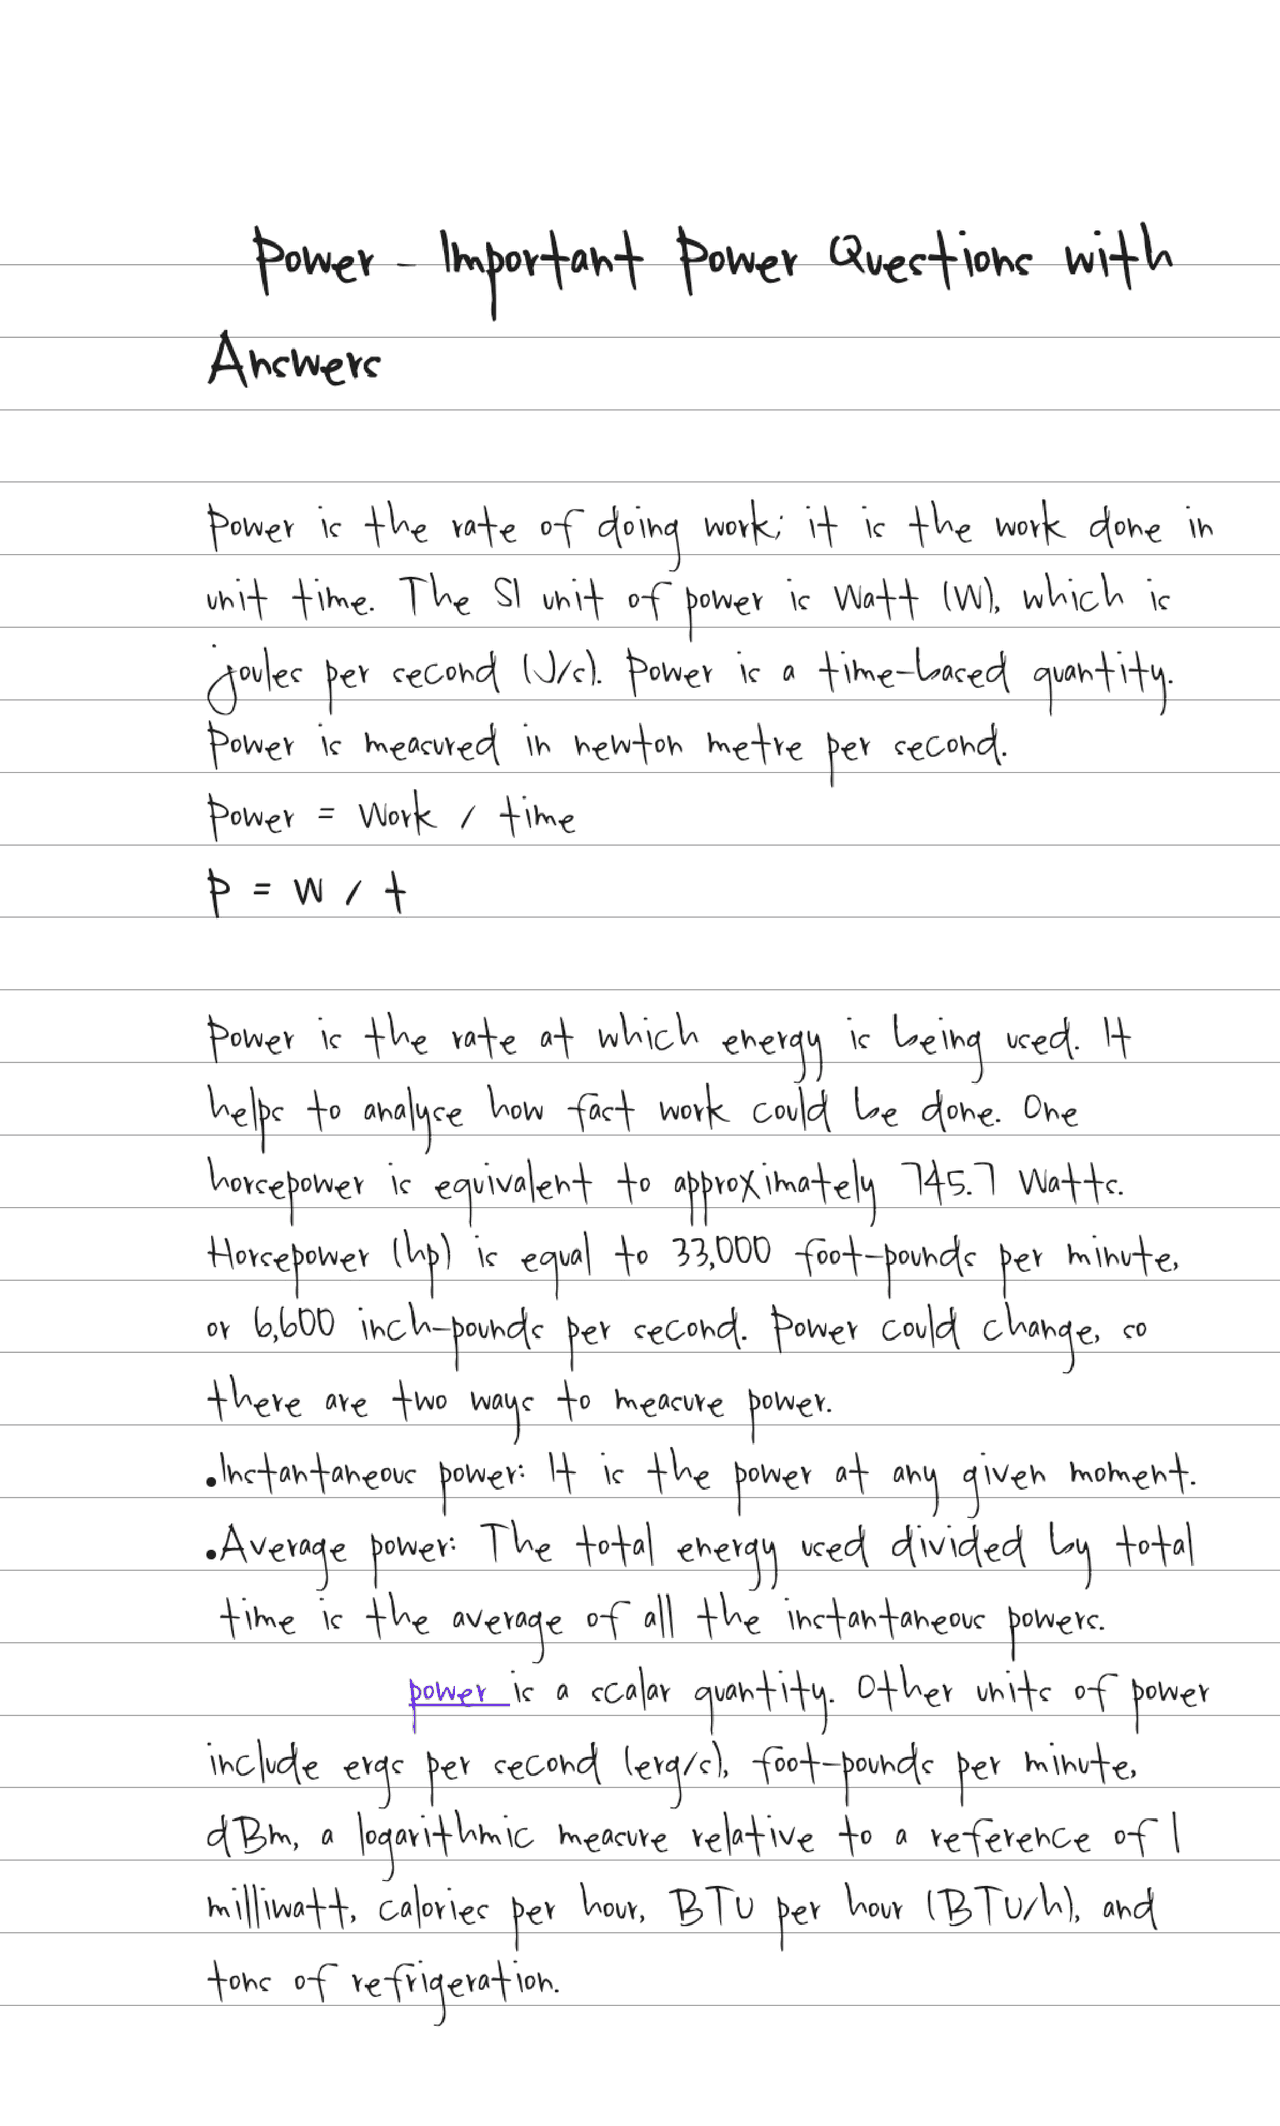 Power - Important Power Questions with
Answers
Power is the rate of doing work; it is the work done in
unit time. The SI unit of power is Watt (W), which is
joules per second (J/s). Power is a time-based quantity.
Power is measured in newton metre per second.
Power = Work / time
P = W / t
Power is the rate at which energy is being used. It
helps to analyse how fast work could be done. One
horsepower is equivalent to approximately 745.7 Watts.
Horsepower (hp) is equal to 33,000 foot-pounds per minute,
or 6,600 inch-pounds per second. Power could change, so
there are two ways to measure power.
•Instantaneous power: It is the power at any given moment.
•Average power: The total energy used divided by total
time is the average of all the instantaneous powers.
power is a scalar quantity. Other units of power
include ergs per second (erg/s), foot-pounds per minute,
dBm, a logarithmic measure relative to a reference of 1
milliwatt, calories per hour, BTU per hour (BTU/h), and
tons of refrigeration.